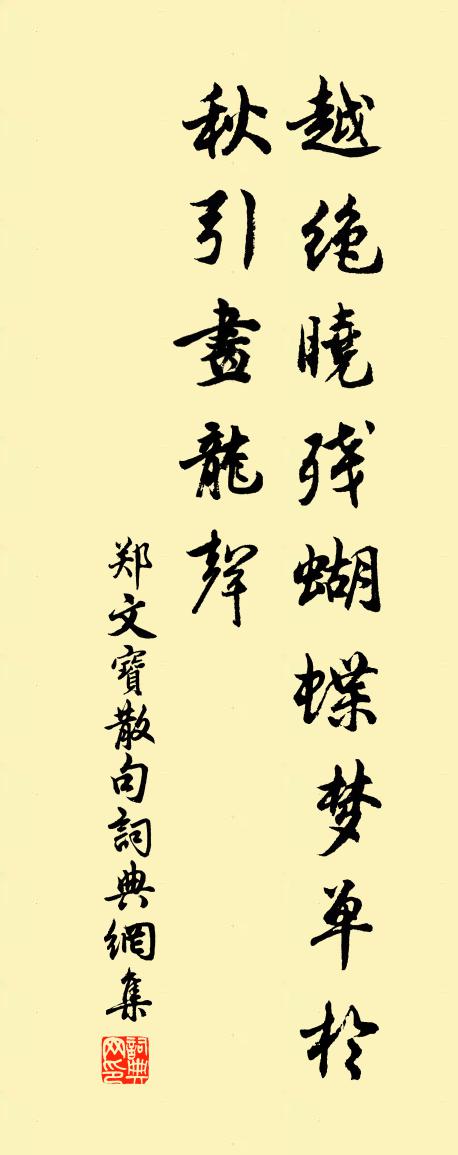 越绝曉残蝴蝶梦单於
秋引畫龍聲
郑文寶散句詞典網集
詞典网印